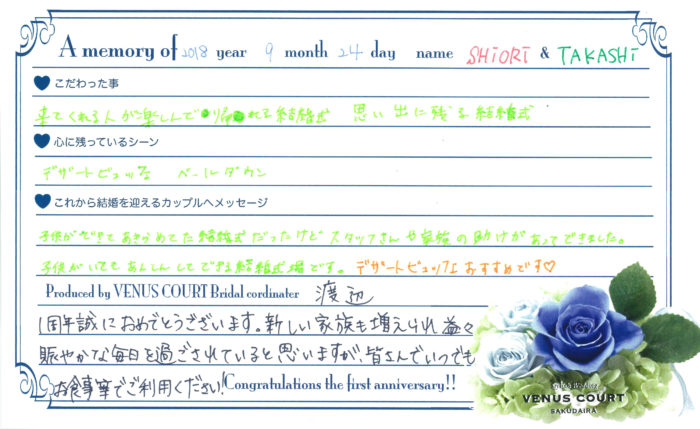 A memory of 2018 year 9 month 24 day name SHiORi & TAKASHi
こだわった事
来てくれる人が楽しんで帰れる結婚式 思い出に残る結婚式
心に残っているシーン
デザートビュッフェ ベールダウン
これから結婚を迎えるカップルへメッセージ
子供ができてあきらめてた結婚式だったけどスタッフさんや家族の助けがあってできました。
子供がいてもあんしんしてできる結婚式場です。デザートビュッフェおすすめです♡
Produced by VENUS COURT Bridal cordinater 渡辺
1周年誠におめでとうございます。新しい家族も増えられ益々
賑やかな毎日を過ごされていると思いますが、皆さんでいつでも
お食事等でご利用ください!
Congratulations the first anniversary!!
VENUS COURT
SAKUDAIRA